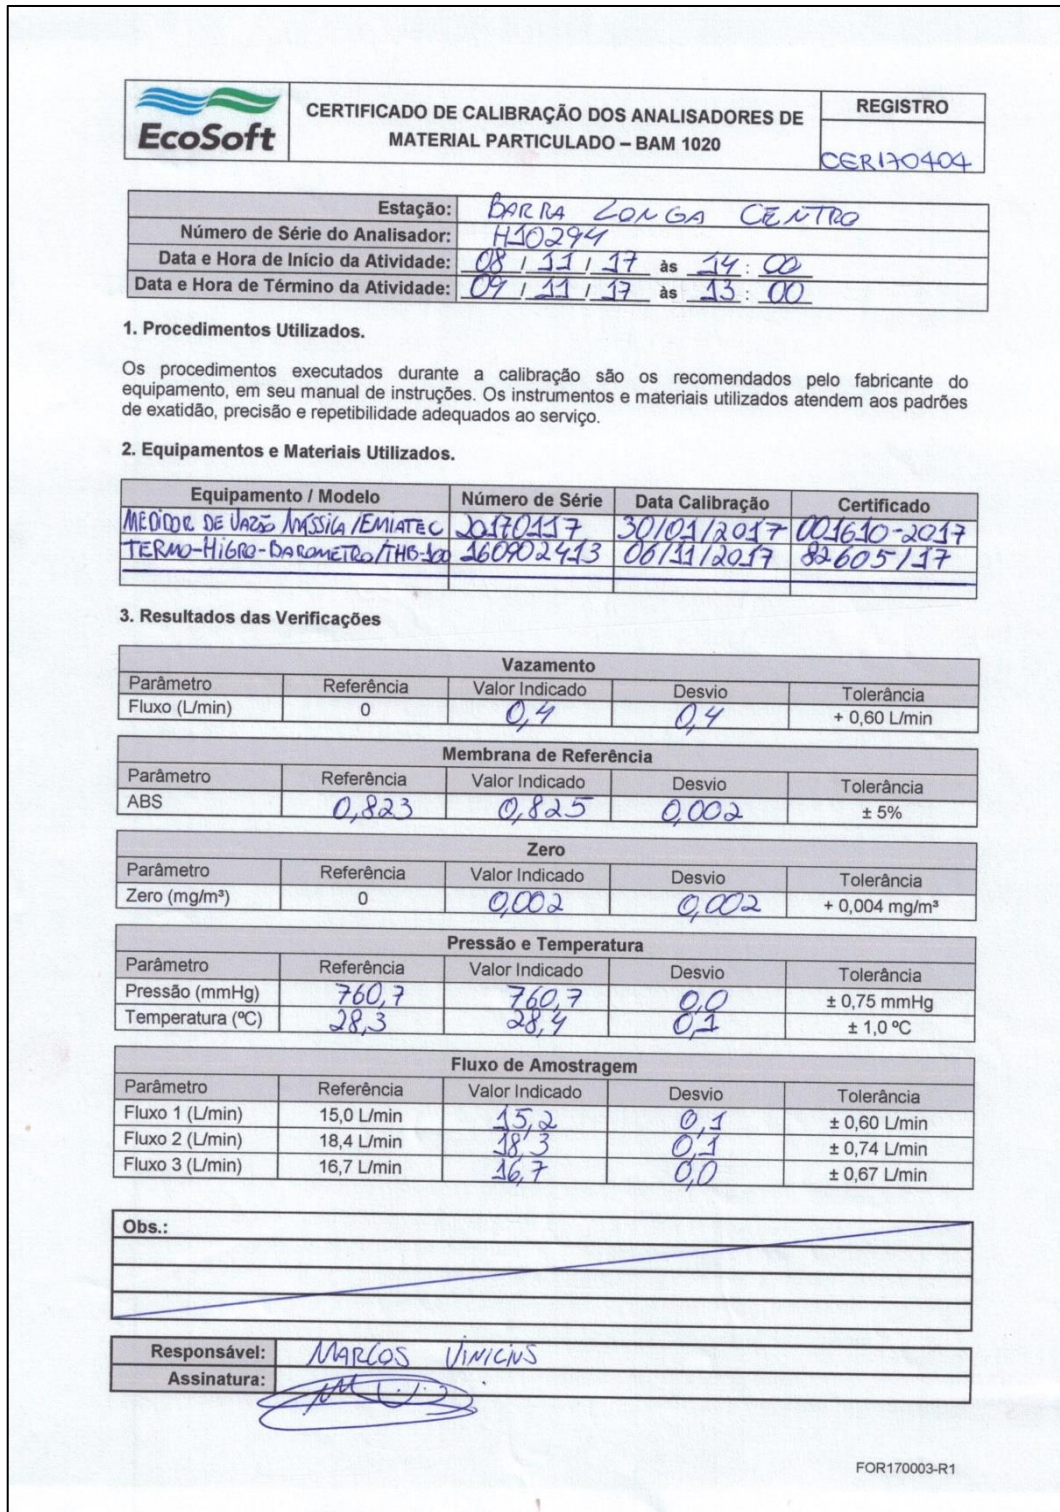 EcoSoft
CERTIFICADO DE CALIBRAÇÃO DOS ANALISADORES DE
MATERIAL PARTICULADO – BAM 1020
REGISTRO
CER170404
Estação: BARRA LONGA CENTRO
Número de Série do Analisador: H10294
Data e Hora de Início da Atividade: 08 / 11 / 17 às 14 : 00
Data e Hora de Término da Atividade: 09 / 11 / 17 às 13 : 00
1. Procedimentos Utilizados.
Os procedimentos executados durante a calibração são os recomendados pelo fabricante do
equipamento, em seu manual de instruções. Os instrumentos e materiais utilizados atendem aos padrões
de exatidão, precisão e repetibilidade adequados ao serviço.
2. Equipamentos e Materiais Utilizados.
Equipamento / Modelo Número de Série Data Calibração Certificado
MEDIDOR DE VAZÃO MÁSSICA /EMIATEC 20170117 30/01/2017 001610-2017
TERMO-HIGRO-BAROMETRO/THB-100 160902413 06/11/2017 82605/17
3. Resultados das Verificações
Vazamento
Parâmetro Referência Valor Indicado Desvio Tolerância
Fluxo (L/min) 0 0,4 0,4 + 0,60 L/min
Membrana de Referência
Parâmetro Referência Valor Indicado Desvio Tolerância
ABS 0,823 0,825 0,002 ± 5%
Zero
Parâmetro Referência Valor Indicado Desvio Tolerância
Zero (mg/m³) 0 0,002 0,002 + 0,004 mg/m³
Pressão e Temperatura
Parâmetro Referência Valor Indicado Desvio Tolerância
Pressão (mmHg) 760,7 760,7 0,0 ± 0,75 mmHg
Temperatura (ºC) 28,3 28,4 0,1 ± 1,0 ºC
Fluxo de Amostragem
Parâmetro Referência Valor Indicado Desvio Tolerância
Fluxo 1 (L/min) 15,0 L/min 15,2 0,1 ± 0,60 L/min
Fluxo 2 (L/min) 18,4 L/min 18,3 0,1 ± 0,74 L/min
Fluxo 3 (L/min) 16,7 L/min 16,7 0,0 ± 0,67 L/min
Obs.:
Responsável: MARCOS VINICIUS
Assinatura:
FOR170003-R1